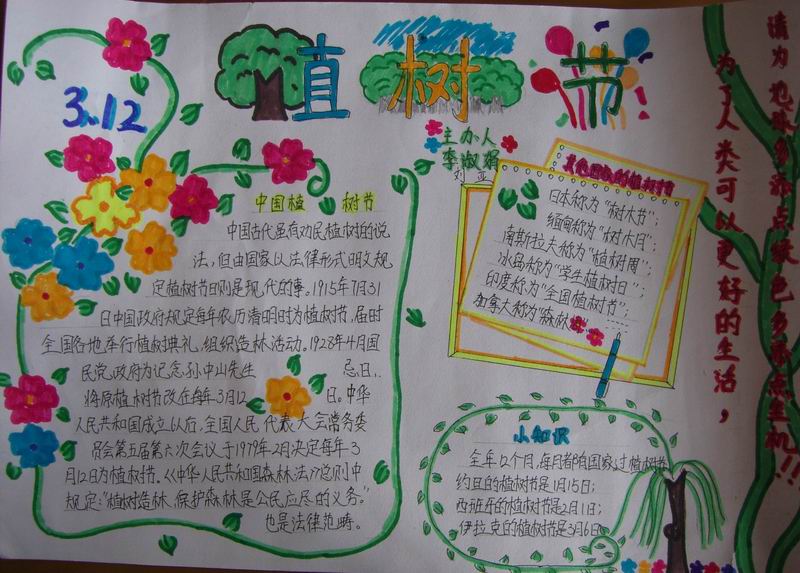 3.12
植树节
主办人
李淑娟
刘亚
中国植 树节
中国古代虽有劝民植树的说
法，但由国家以法律形式明文规
定植树节日则是现代的事。1915年7月31
日中国政府规定每年农历清明时为植树节，届时
全国各地举行植树典礼，组织造林活动。1928年4月国
民党政府为记念孙中山先生 忌日，
将原植树节改在每年3月12 日。中华
人民共和国成立以后，全国人民代表大会常务委
员会第五届第六次会议于1979年2月决定每年3
月12日为植树节。《中华人民共和国森林法》总则中
规定："植树造林、保护森林是公民应尽的义务。"
也是法律范畴。
其他国家的植树节
日本称为"树木节"；
缅甸称为"树木月"；
南斯拉夫称为"植树周"；
冰岛称为"学生植树日"；
印度称为"全国植树节"；
加拿大称为"森林
小知识
全年12个月，每月都有国家过植树节
约旦的植树节是1月15日；
西班牙的植树节是2月1日；
伊拉克的植树节是3月6日
请为地球多添点绿色多添点生机!!!
为了人类可以更好的生活，